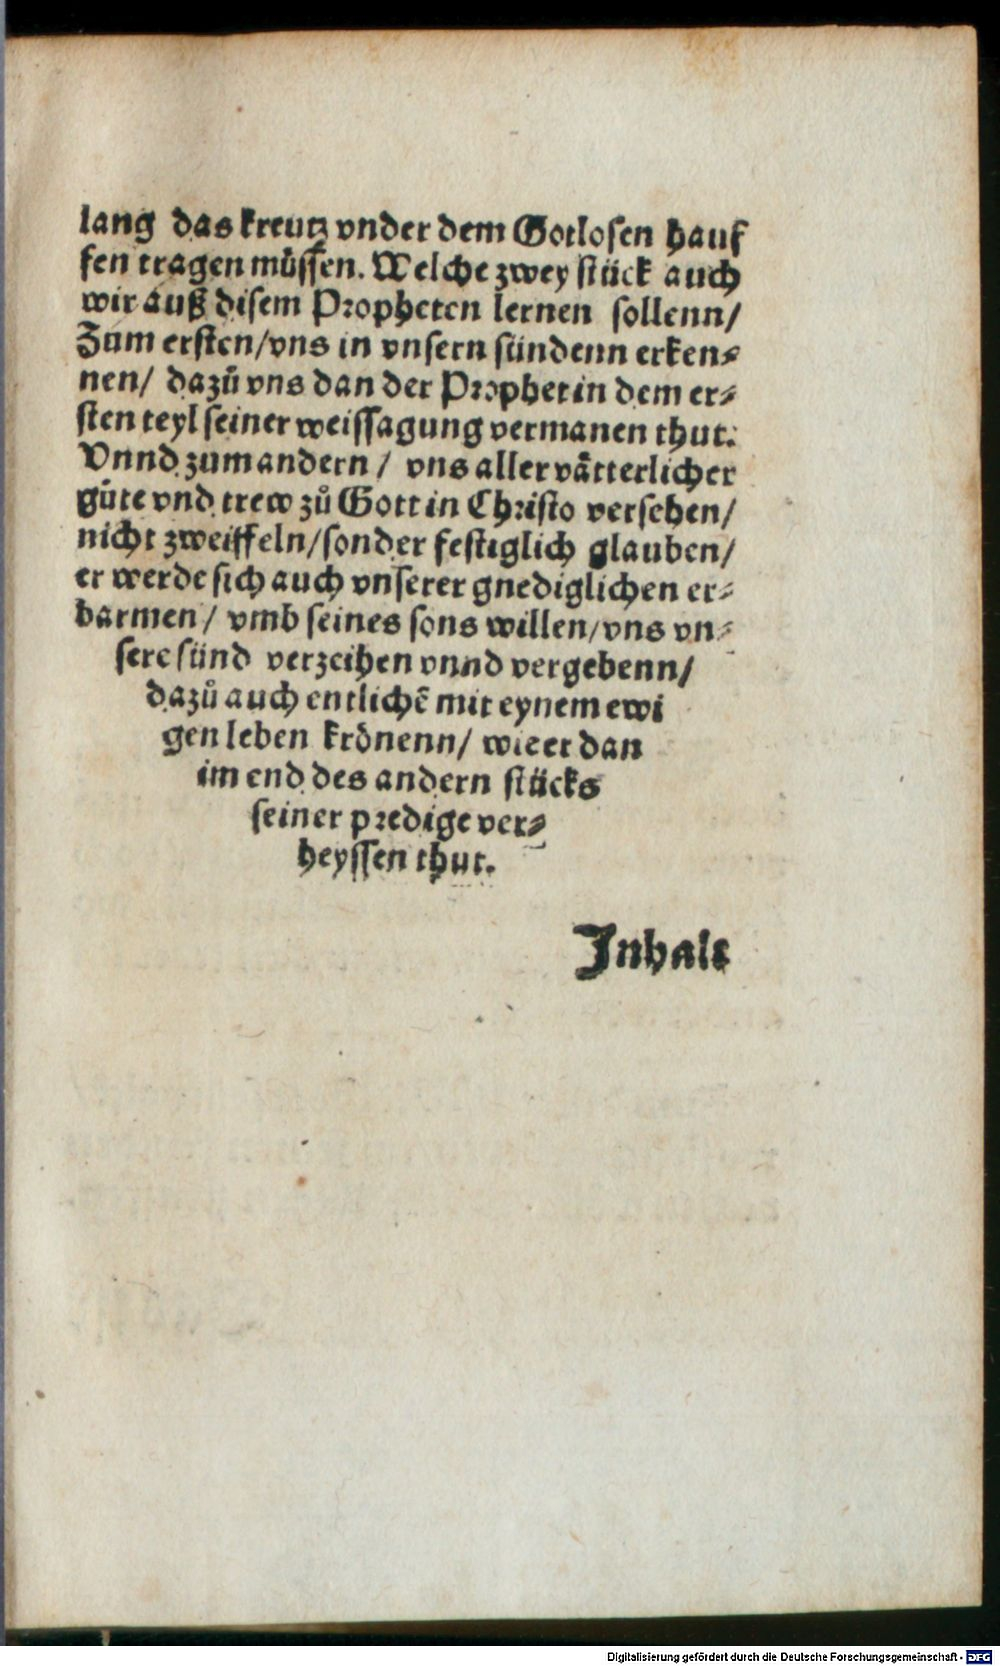 lang das kreutz vnder dem Gotlosen hauf
fen tragen müssen. Welche zwey stück auch
wir auß disem Propheten lernen sollenn/
Zům ersten/vns in vnsern sündenn erken⸗
nen/ dazů vns dan der Prophet in dem er⸗
sten teyl seiner weissagung vermanen thut.
Vnnd zum andern / vns aller vätterlicher
güte vnd trew zů Gott in Christo versehen/
nicht zweiffeln/sonder festiglich glauben/
er werde sich auch vnserer gnediglichen er⸗
barmen / vmb seines sons willen/vns vn⸗
sere sünd verzeihen vnnd vergebenn/
dazů auch entlichē mit eynem ewi
gen leben krönenn/ wie er dan
im end des andern stücks
seiner predige ver⸗
heyssen thut.
Inhalt
Digitalisierung gefördert durch die Deutsche Forschungsgemeinschaft - DFG